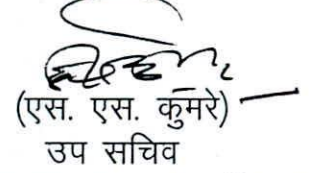 (एस. एस. कुमरे)
उप सचिव